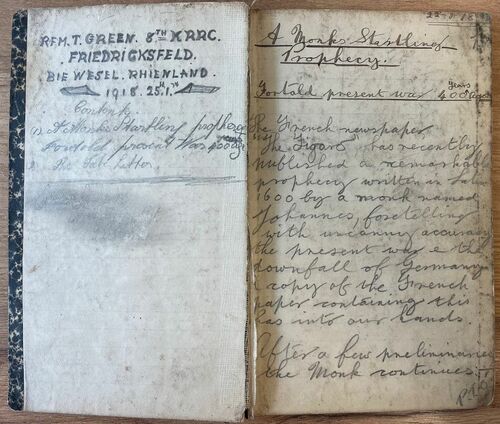 RFM. T. GREEN. 8TH KRRC.
FRIEDRICKSFELD.
BIE WESEL. RHIENLAND.
1918. 25TH
Contents
(1) A Monks Startling prophecy
Fortold present War 400 years ago
2
22-5-18
A Monks Startling
Prophecy.
Fortold present war 400 Years ago
The French newspaper
"The Figaro" has recently
published a remarkable
prophecy written in Latin
1600 by a monk named
Johannes, foretelling
with uncanny accuracy
the present war & the
downfall of Germany
a copy of the French
paper containing this
has into our hands.
After a few preliminaries
the Monk continues:
P.T.O